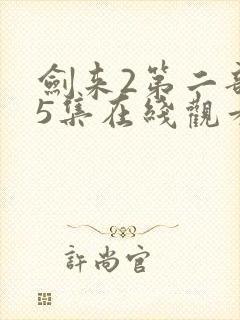 劍来2第二部
5集在綫觀
許尚官